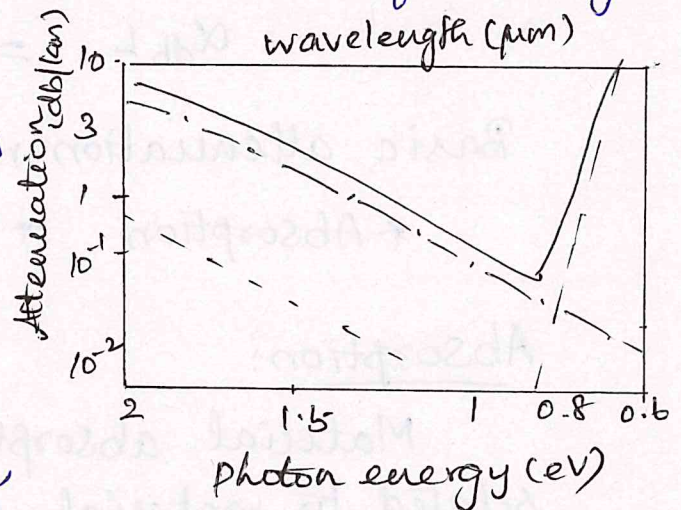 wavelength (μm)
Attenuation (db/km)
10
3
1
10-1
10-2
2 1.5 1 0.8 0.6
photon energy (eV)